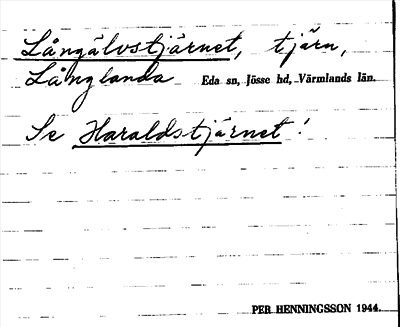 Långälvstjärnet, tjärn,
Långlanda Eda sn, Jösse hd, Värmlands län.
Se Haraldstjärnet!
PER HENNINGSSON 1944.